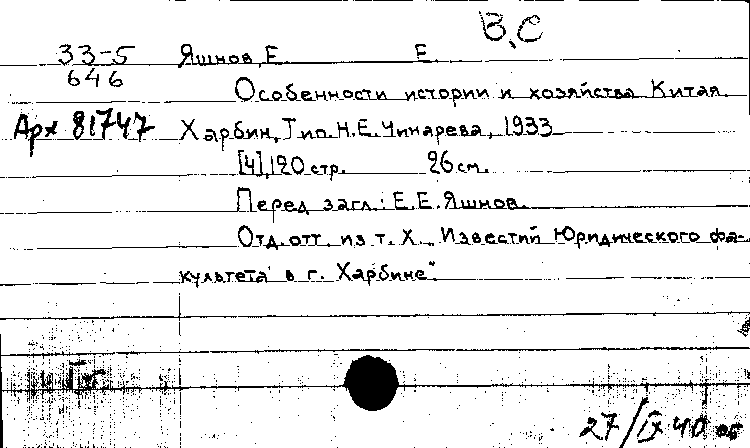 В,С
33-5 Яшнов, Е. Е.
646
Особенности истории и хозяйства Китая.
Арх 81747 Харбин, Тип. Н.Е. Чинарева, 1933
[4], 120 стр. 26 см.
Перед загл.: Е.Е. Яшнов.
Отд. отт. из т. X „Известий Юридического фа-
культета в г. Харбине".
27/IX 40